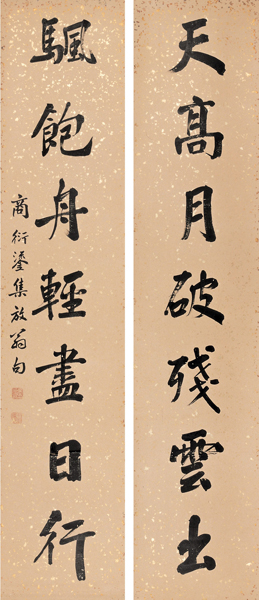 天高月破殘雲出
颿飽舟輕盡日行
商衍鎏集放翁句